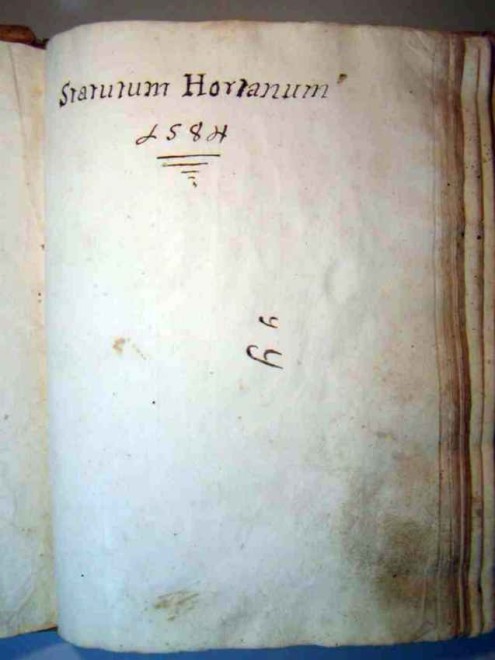 Statutum Hortanum
1584